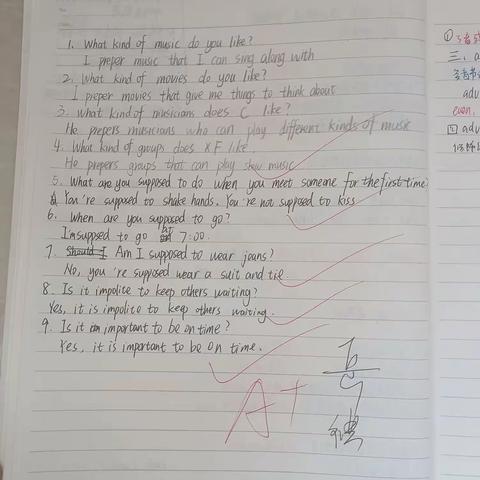 1. What kind of music do you like?
I preper music that I can sing along with
2. What kind of movies do you like?
I preper movies that give me things to think about
3. What kind of musicians does C like?
He prepers musicians who can play different kinds of music
4. What kind of groups does XF like.
He prepers groups that can play slow music
5. What are you supposed to do when you meet someone for the first time?
You're supposed to shake hands. You're not supposed to kiss
6. When are you supposed to go?
I'm supposed to go at 7:00.
7. Am I supposed to wear jeans?
No, you're supposed wear a suit and tie
8. Is it impolite to keep others waiting?
Yes, it is impolite to keep others waiting.
9. Is it important to be on time?
Yes, it is important to be on time.
A+
①
三、a
adv
even.
四 adv